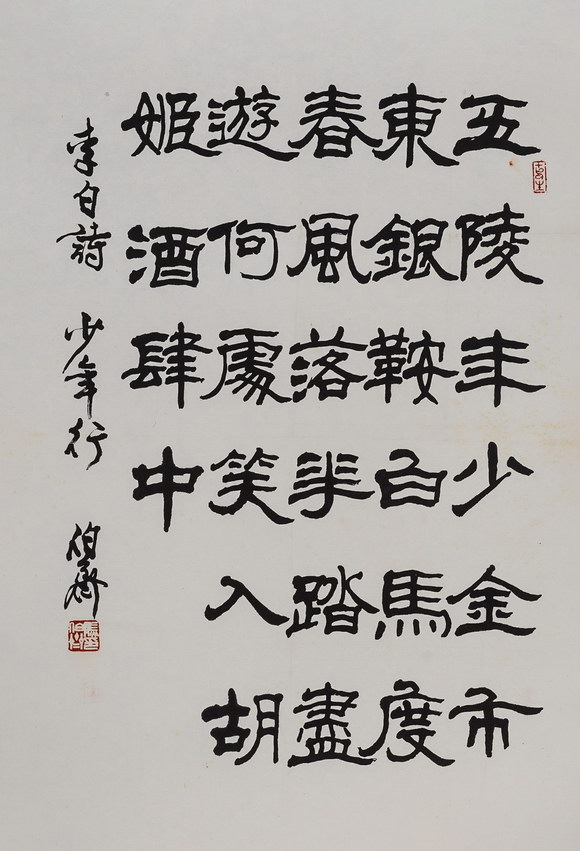 五陵年少金市
東銀鞍白馬度
春風落花踏盡
遊何處笑入胡
姬酒肆中
李白詩 少年行 伯齊